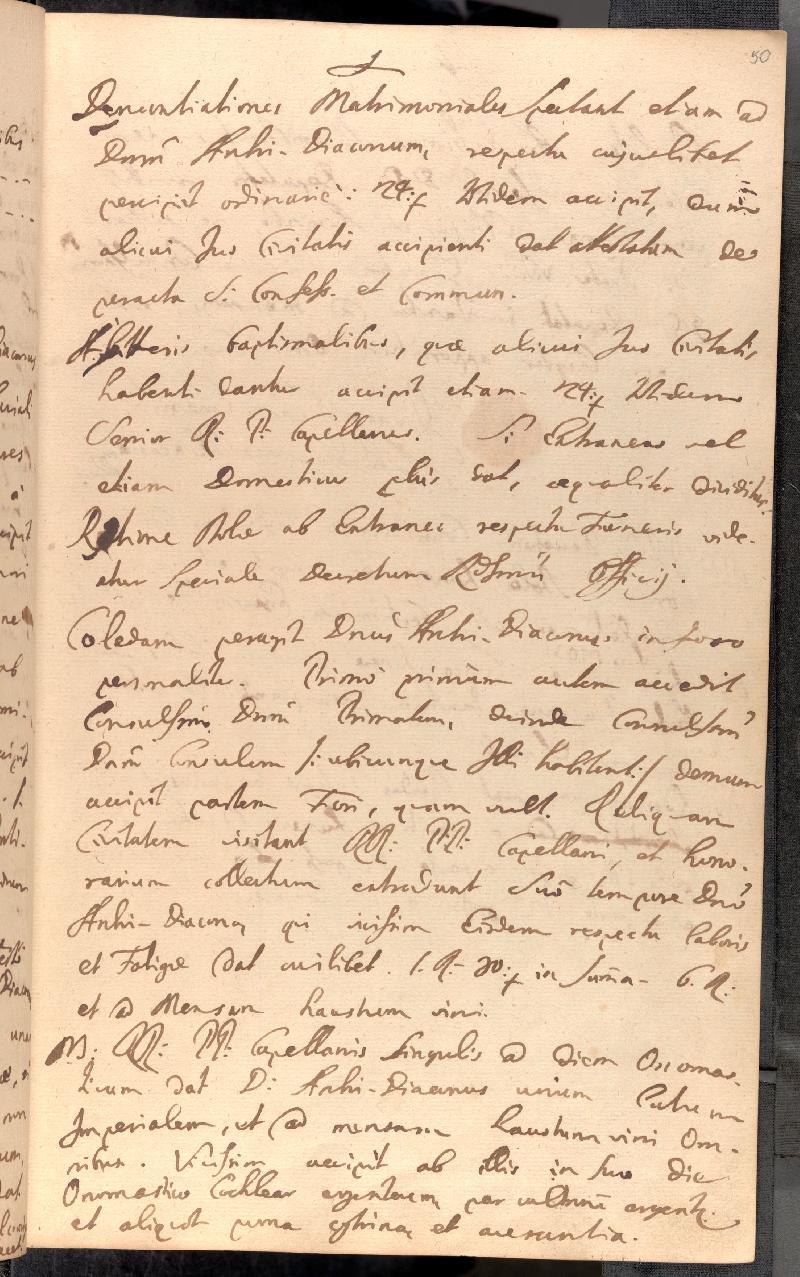 50
Denuntiationes Matrimoniales spectant etiam ad
Dnum Archi-Diaconum, respectu cujuslibet
percipit ordinarie: 24 xr Itidem accipit, dum
alicui Jus Civitatis accipienti dat attestatum de
peracta S: Confess. et Commun.
A Litteris baptismalibus, quae alicui Jus Civitatis
habenti dantur accipit etiam 24 xr Itidem
Senior R: P: Capellanus. Si Extraneus vel
etiam Domesticus plus dat, aequaliter dividitur.
Ratione Stolae ab Extraneis respectu Funeris vide-
atur speciale decretum Rdssimi Officij.
Coledam peragit Dnus Archi-Diaconus in foro
personaliter. Primo primum autem accedit
Consulssimum Dnum Primatem, deinde Consulssimum
Dnum Consulem /: ubicunque Isti habitent :/ demum
accipit partem Fori, quam vult. Reliquam
Civitatem visitant RR: PP: Capellani, et hono-
rarium collectum extradunt suo tempore Dno
Archi-Diacono, qui vicissim Eisdem respectu laboris
et Fatigae dat cuilibet. 1. R. 30 xr in Summa 6. R:
et ad Mensam haustum vini.
NB: RR: PP: Capellanis singulis ad diem Onomas-
ticum dat D: Archi-Diaconus unum
Imperialem, et ad mensam haustum vini Om-
nibus. Vicissim accipit ab illis in suo die
Onomastico Cochlear argenteum, per argent:
et aliquot poma cytrina, et aurantia.